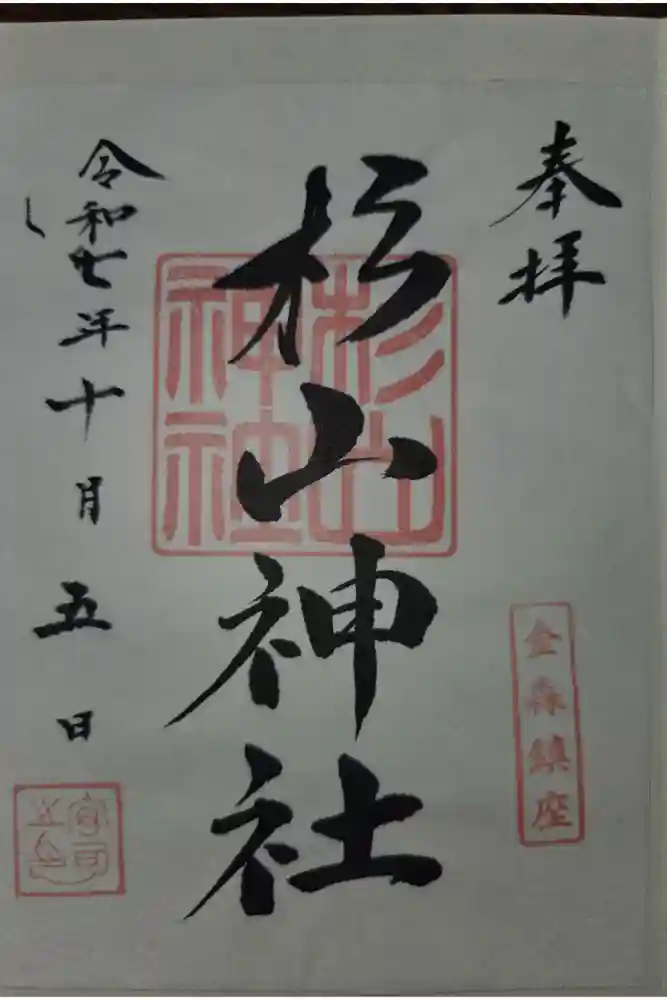 奉拝
金森鎮座
杉山神社
杉山
神社
令和七年十月五日
宮司